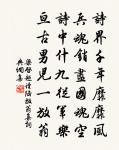 詩界千年靡靡風
兵魂銷盡國魂空
詩中什九從軍樂
亘古男兒一放翁
梁啟超讀陸放翁集詞
典網集